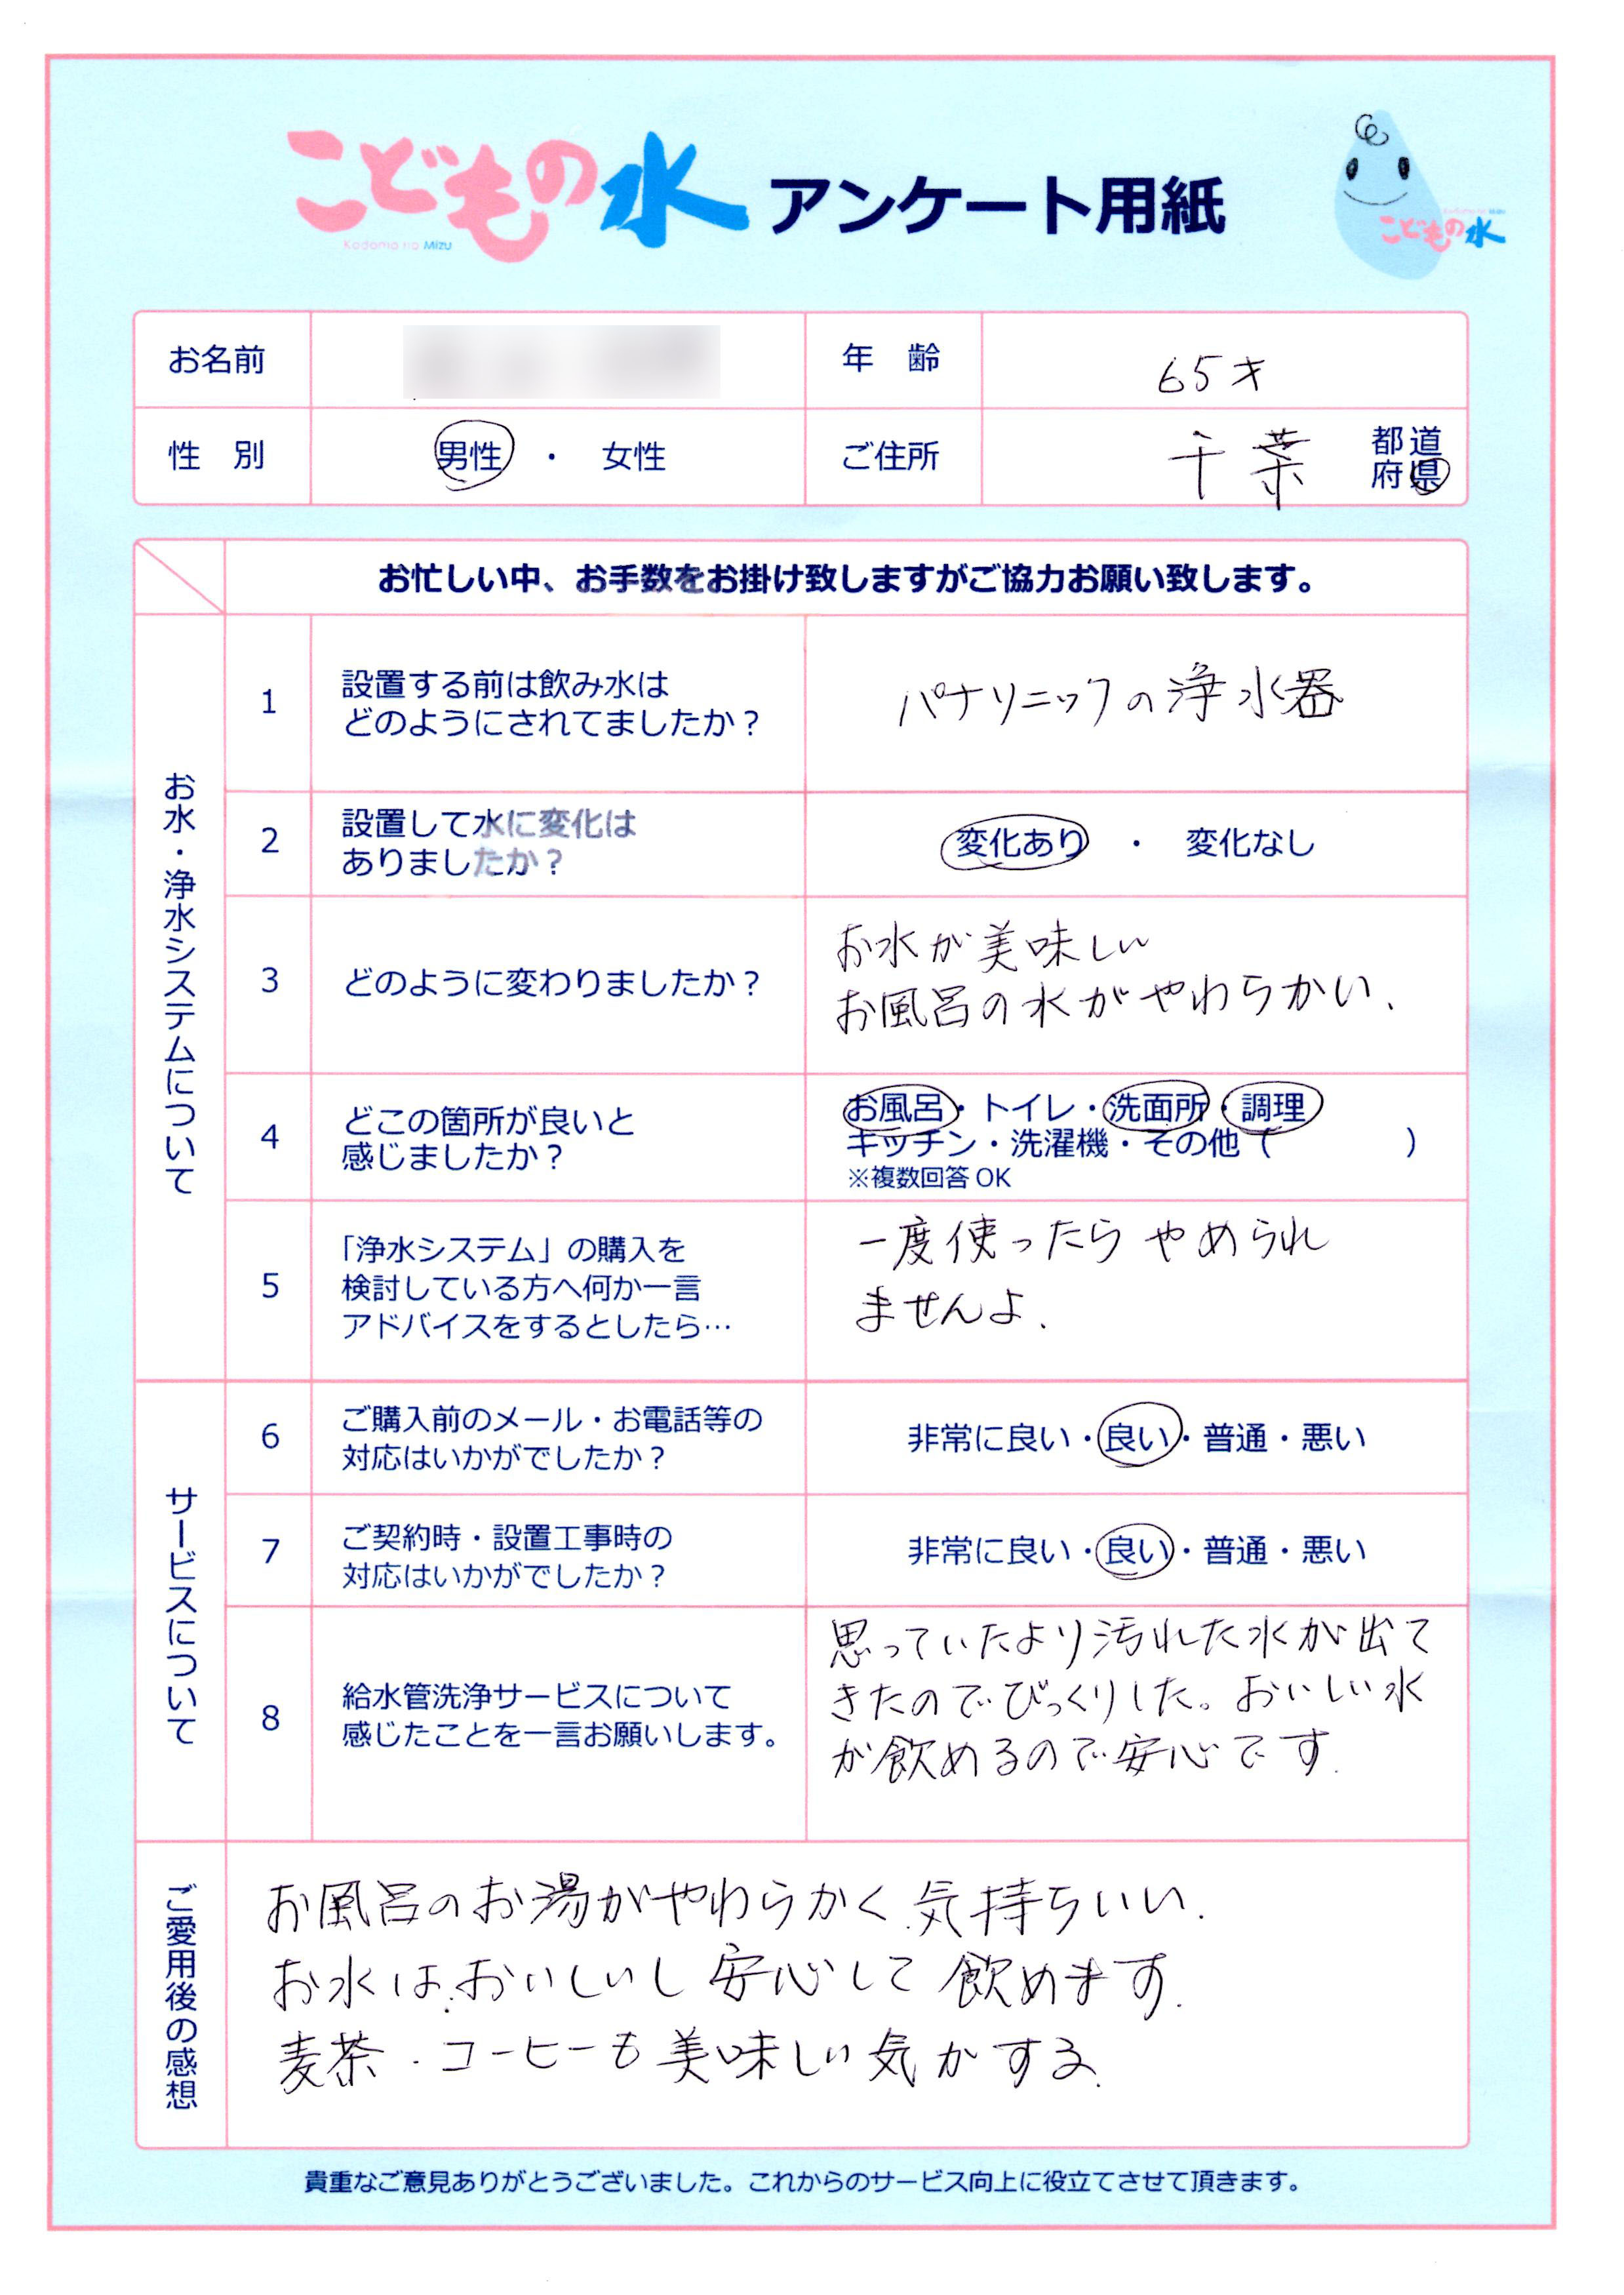 こどもの水 アンケート用紙
Kodomo no Mizu
Kodomo no Mizu
こどもの水
お名前
年 齢 65才
性 別 男性 ・ 女性
ご住所 千葉 都道
府県
お忙しい中、お手数をお掛け致しますがご協力お願い致します。
お水・浄水システムについて
1 設置する前は飲み水は
どのようにされてましたか？
パナソニックの浄水器
2 設置して水に変化は
ありましたか？
変化あり ・ 変化なし
3 どのように変わりましたか？
お水が美味しい
お風呂の水がやわらかい.
4 どこの箇所が良いと
感じましたか？
お風呂・トイレ・洗面所・調理
キッチン・洗濯機・その他（ ）
※複数回答 OK
5 「浄水システム」の購入を
検討している方へ何か一言
アドバイスをするとしたら…
一度使ったらやめられ
ませんよ.
サービスについて
6 ご購入前のメール・お電話等の
対応はいかがでしたか？
非常に良い・良い・普通・悪い
7 ご契約時・設置工事時の
対応はいかがでしたか？
非常に良い・良い・普通・悪い
8 給水管洗浄サービスについて
感じたことを一言お願いします。
思っていたより汚れた水が出て
きたのでびっくりした。おいしい水
が飲めるので安心です.
ご愛用後の感想
お風呂のお湯がやわらかく.気持ちいい.
お水は.おいしいし安心して飲めます.
麦茶.コーヒーも美味しい気がする.
貴重なご意見ありがとうございました。これからのサービス向上に役立てさせて頂きます。